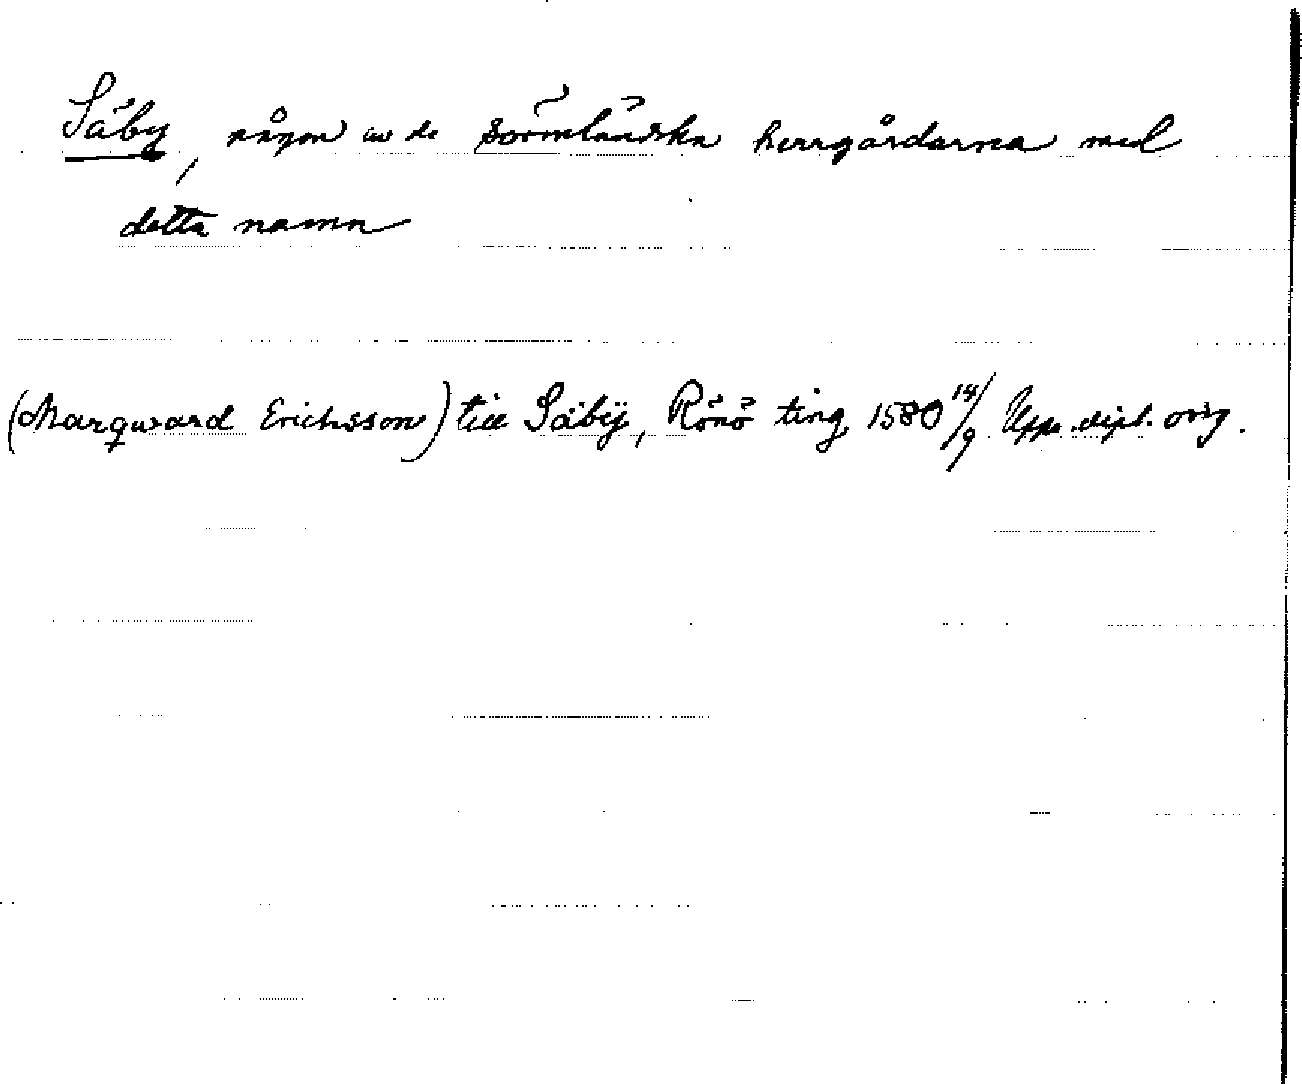 Säby, någon av de sörmländska herrgårdarna med
detta namn
(Marqward Erichsson) till Säbÿ, Rönö ting 1580 14/9 Upps. dipl. orig.